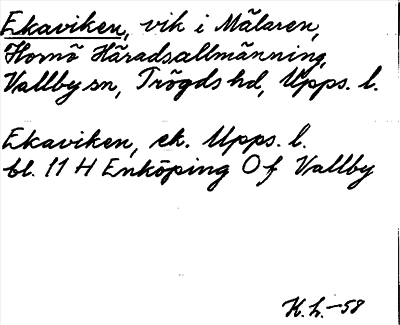 Ekaviken, vik i Mälaren,
Hornö Häradsallmänning,
Vallby sn, Trögds hd, Upps. l.
Ekaviken, ek. Upps. l.
bl. 11 H Enköping O f Vallby
K.h.-58